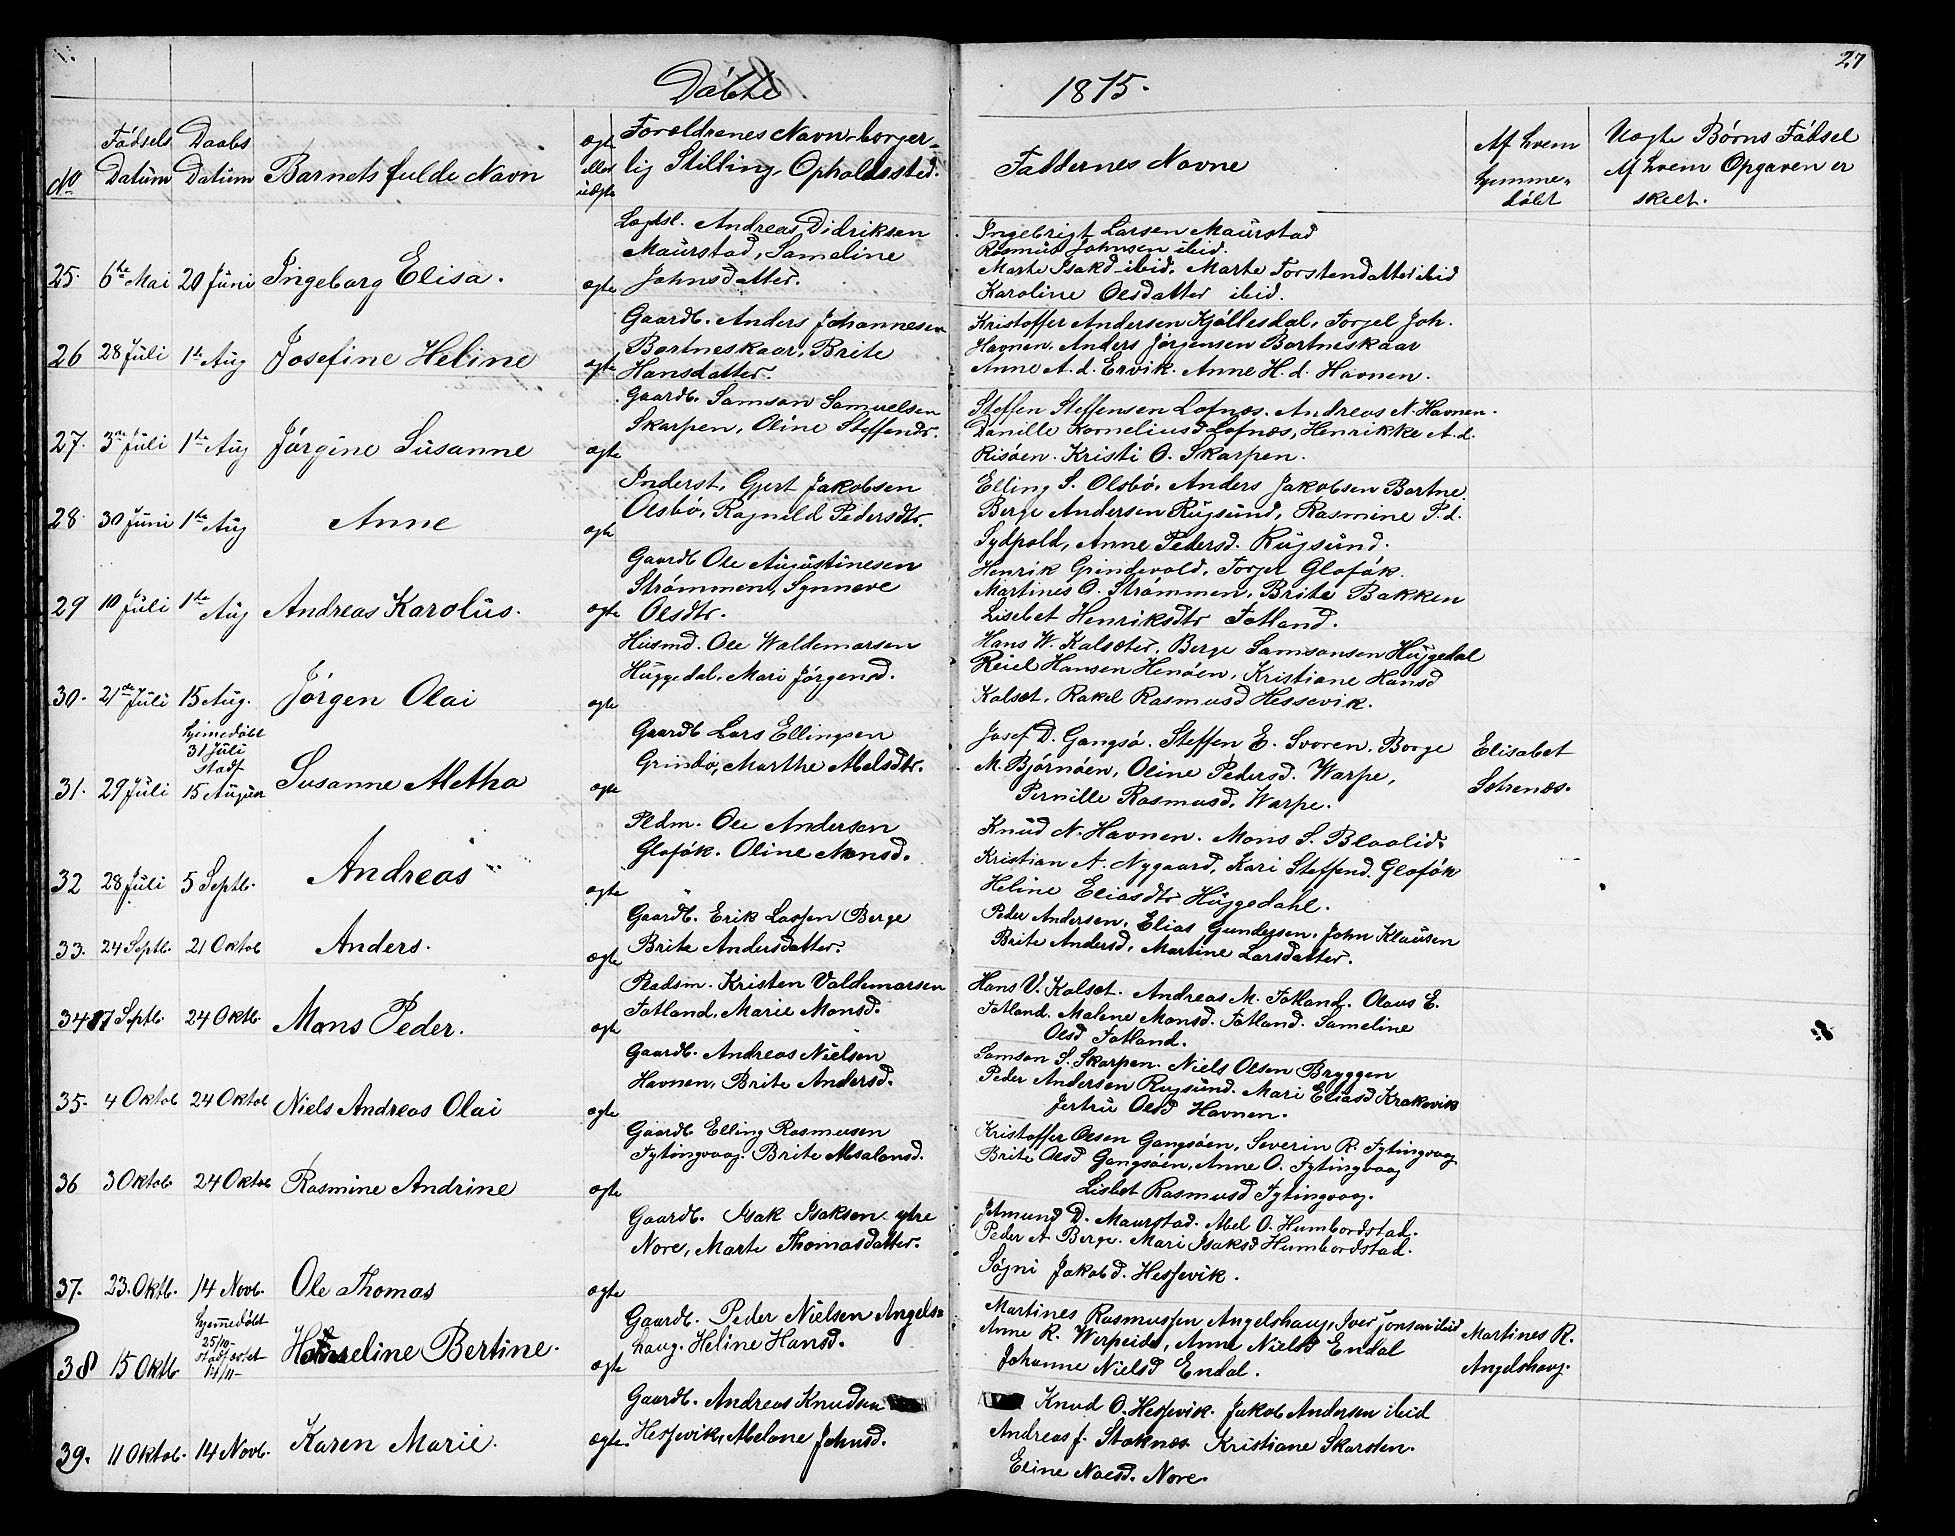 27
Døbte 1875.
No
Fødsels Datum
Daabs Datum
Barnets fulde Navn
ægte eller uægte
Forældrenes Navn, borger-
lig Stilling, Opholdssted.
Faddernes Navne
Af hvem hjemme-døbt
Uægte Børns Fødsel
Af hvem Opgaven er
skeet.
25. 6te Mai 20 Juni Ingeborg Elisa. ægte
Logsl. Andreas Didriksen
Maurstad, Sameline
Johnsdatter.
Ingebrigt Larsen Maurstad
Rasmus Johnsen ibid.
Marte Isakd ibid. Marte Torstendatter ibid
Karoline Olsdatter ibid.
26 28 Juli 1te Aug Josefine Heline ægte
Gaardb. Anders Johannesen
Bortneskaar, Brite
Hansdatter.
Kristoffer Andersen Kjøllesdal, Torgel Joh.
Havnen, Anders Jørgensen Bortneskaar
Anne A. d. Ervik. Anne H. d. Havnen.
27. 3die Juli 1te Aug Jørgine Susanne ægte
Gaardb. Samson Samuelsen
Skarpen, Oline Steffendr.
Steffen Steffensen Lofnæs. Andreas N. Havnen.
Danille Korneliusd Lofnæs, Henrikke A. d.
Risøen. Kristi O. Skarpen.
28. 30 Juni 1te Aug Anne ægte
Inderst, Gjert Jakobsen
Olsbø, Ragnild Pedersdtr.
Elling S. Olsbø, Anders Jakobsen Bortne
Berge Andersen Rugsund, Rasmine P. d.
Sydpold, Anne Pedersd. Rugsund.
29 10 Juli 1te Aug Andreas Karolus. ægte
Gaardb Ole Augustinesen
Strømmen, Synneve
Olsdtr.
Henrik Grindevold, Torgel Gloføk.
Martines O. Strømmen, Brite Bakken
Lisebet Henriksdtr Totland.
30. 21de Juli 15 Aug. Jørgen Olai ægte
Husmd. Ole Waldemarsen
Huggedal, Mari Jørgensd.
Hans W. Kalsæter, Berge Samsonsen Huggedal
Reiel Hansen Henøen, Kristiane Hansd
Kalsæt, Rakel Rasmusd Hessevik.
31. 29 Juli
Hjemedøbt
31 Juli
stadf
15 August
Susanne Aletha ægte
Gaardb Lars Ellingsen
Grindø, Marthe Abelsdtr.
Josef D. Gangsø. Steffen E. Svoren. Borge
M. Bjørnøen, Oline Pedersd. Warpe,
Pernille Rasmusd. Warpe.
Elisabet
Sætrenæs.
32 28 Juli 5 Septb. Andreas ægte
Pldm. Ole Andersen
Gloføk. Oline Monsd.
Knud N. Havnen. Mons S. Blaalid.
Kristian A. Nygaard, Kari Steffend. Gloføk
Heline Eliasdtr Huggedahl.
33. 24 Septb. 21 Oktob Anders. ægte
Gaardb. Erik Lassen Berge
Brite Andersdatter.
Peder Andersen, Elias Gundersen, John Klausen
Brite Andersd, Martine Larsdatter.
34 17 Septb. 24 Oktb. Mons Peder. ægte
Pladsm. Kristen Valdemarsen
Totland, Marie Monsd.
Hans V. Kalsæt. Andreas M. Totland. Olaus E.
Totland. Malene Monsd. Totland. Sameline
Olsd Totland.
35. 4 Oktob 24 Oktob Niels Andreas Olai ægte
Gaardb. Andreas Nielsen
Havnen, Brite Andersd.
Samson S. Skarpen. Niels Olsen Bryggen
Peder Andersen Rugsund. Mari Eliasd Krakevik
Jertru Olsd Havnen.
36 3 Oktob 24 Oktob Rasmine Andrine ægte
Gaardb Elling Rasmusen
Tytingvaag. Brite Absalonsd.
Kristoffer Olsen Gangsøen, Severin R. Tytingvaag
Brite Olsd Gangsøen, Anne O. Tytingvaag
Lisbet Rasmusd Tytingvaag.
37. 23. Oktb. 14 Novb. Ole Thomas ægte
Gaardb. Isak Isaksen ytre
Nore, Marte Thomasdatter.
Jetmund D. Maurstad. Abel O. Humbordstad.
Peder A. Berge. Mari Isaksd Humbordstad.
Søgni Jakobd. Hessevik.
38 15 Oktb
Hjemedøbt
25/10
stadfæstet
14/11
Hanseline Bertine. ægte
Gaardb. Peder Nielsen Angels-
haug. Heline Hansd.
Martines Rasmussen Angelshaug, Iver Jonsen ibid
Anne R. Werpeide, Anne Nielsd Endal
Johanne Nielsd Endal.
Martines R.
Angelshaug.
39. 11 Oktob. 14 Novb. Karen Marie. ægte.
Gaardb. Andreas Knudsen
Hessevik, Abelone Johnsd.
Knud O. Hessevik. Jakob Andersen ibid
Andreas J. Stoknæs. Kristiane Skarsten.
Eline Nilsd. Nore.